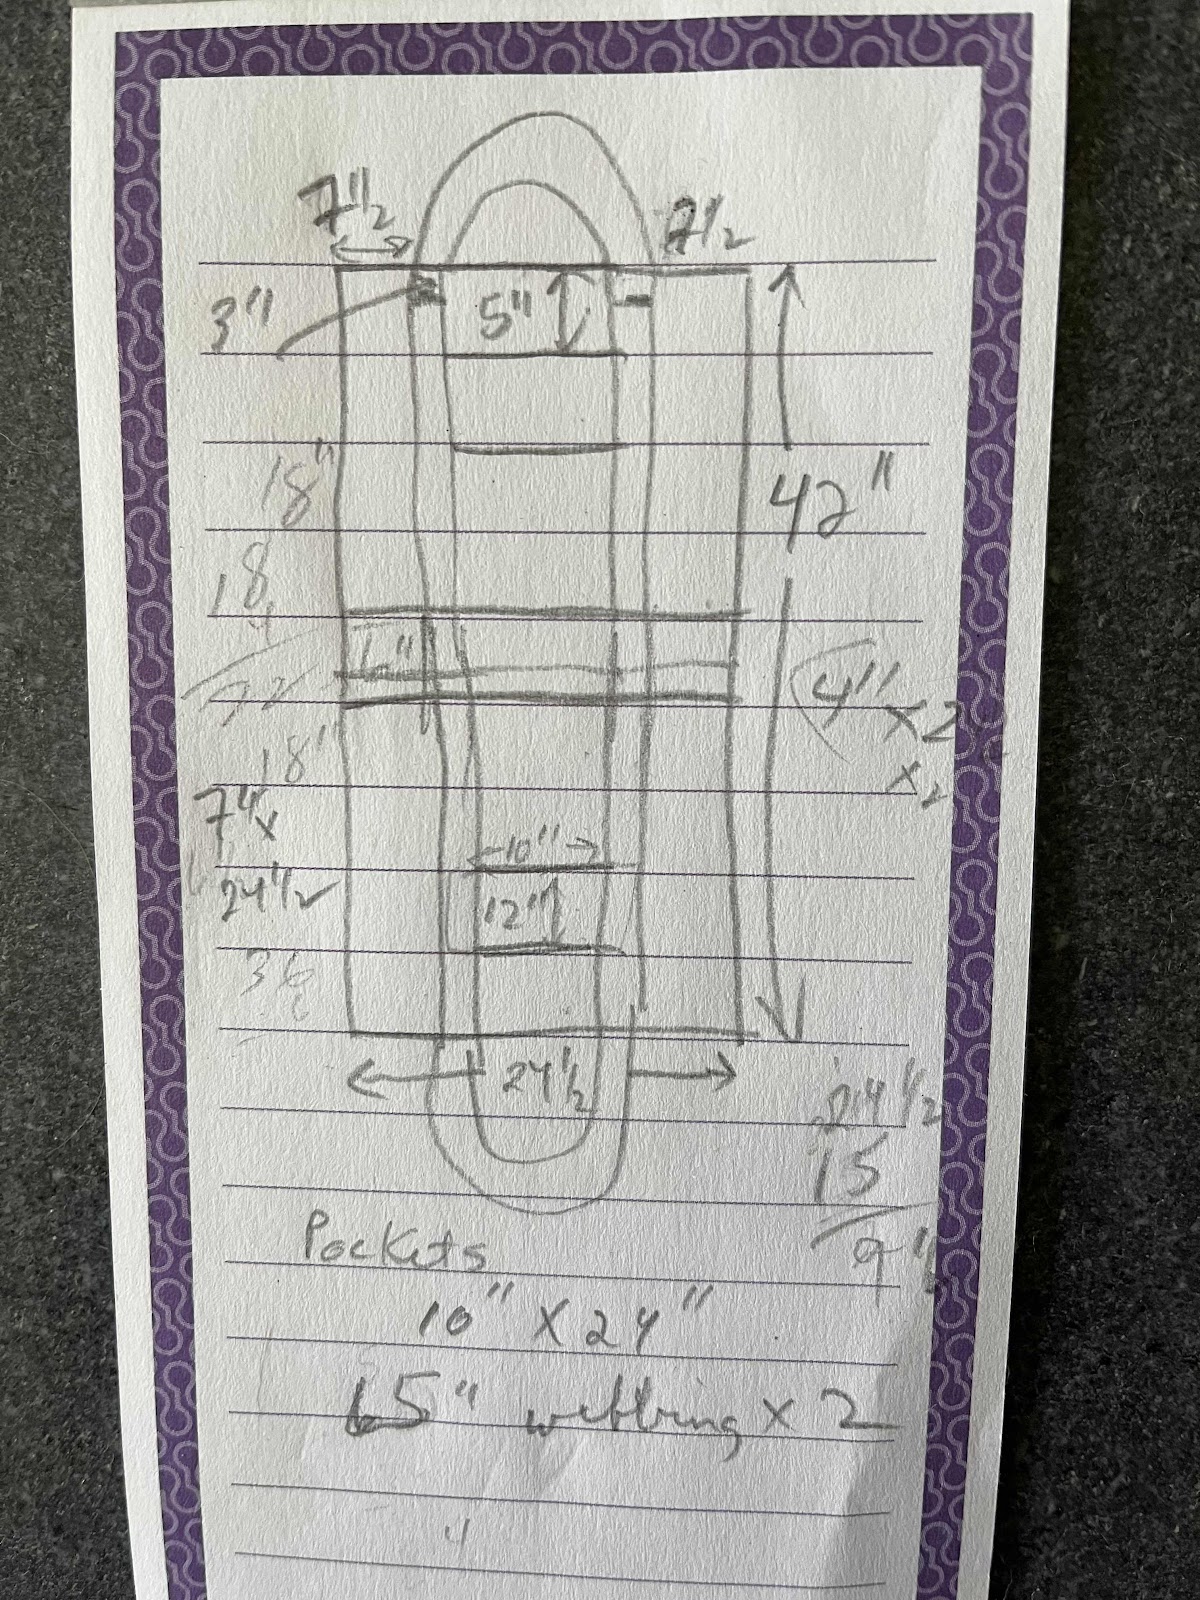 7"½
7½
3"
5"
18"
42"
18
6"
4" x2
x2
18"
7" x
10"
24"½
12"
36
24½
24"½
15
9"
Pockets
10" X 24"
65" webbing x 2